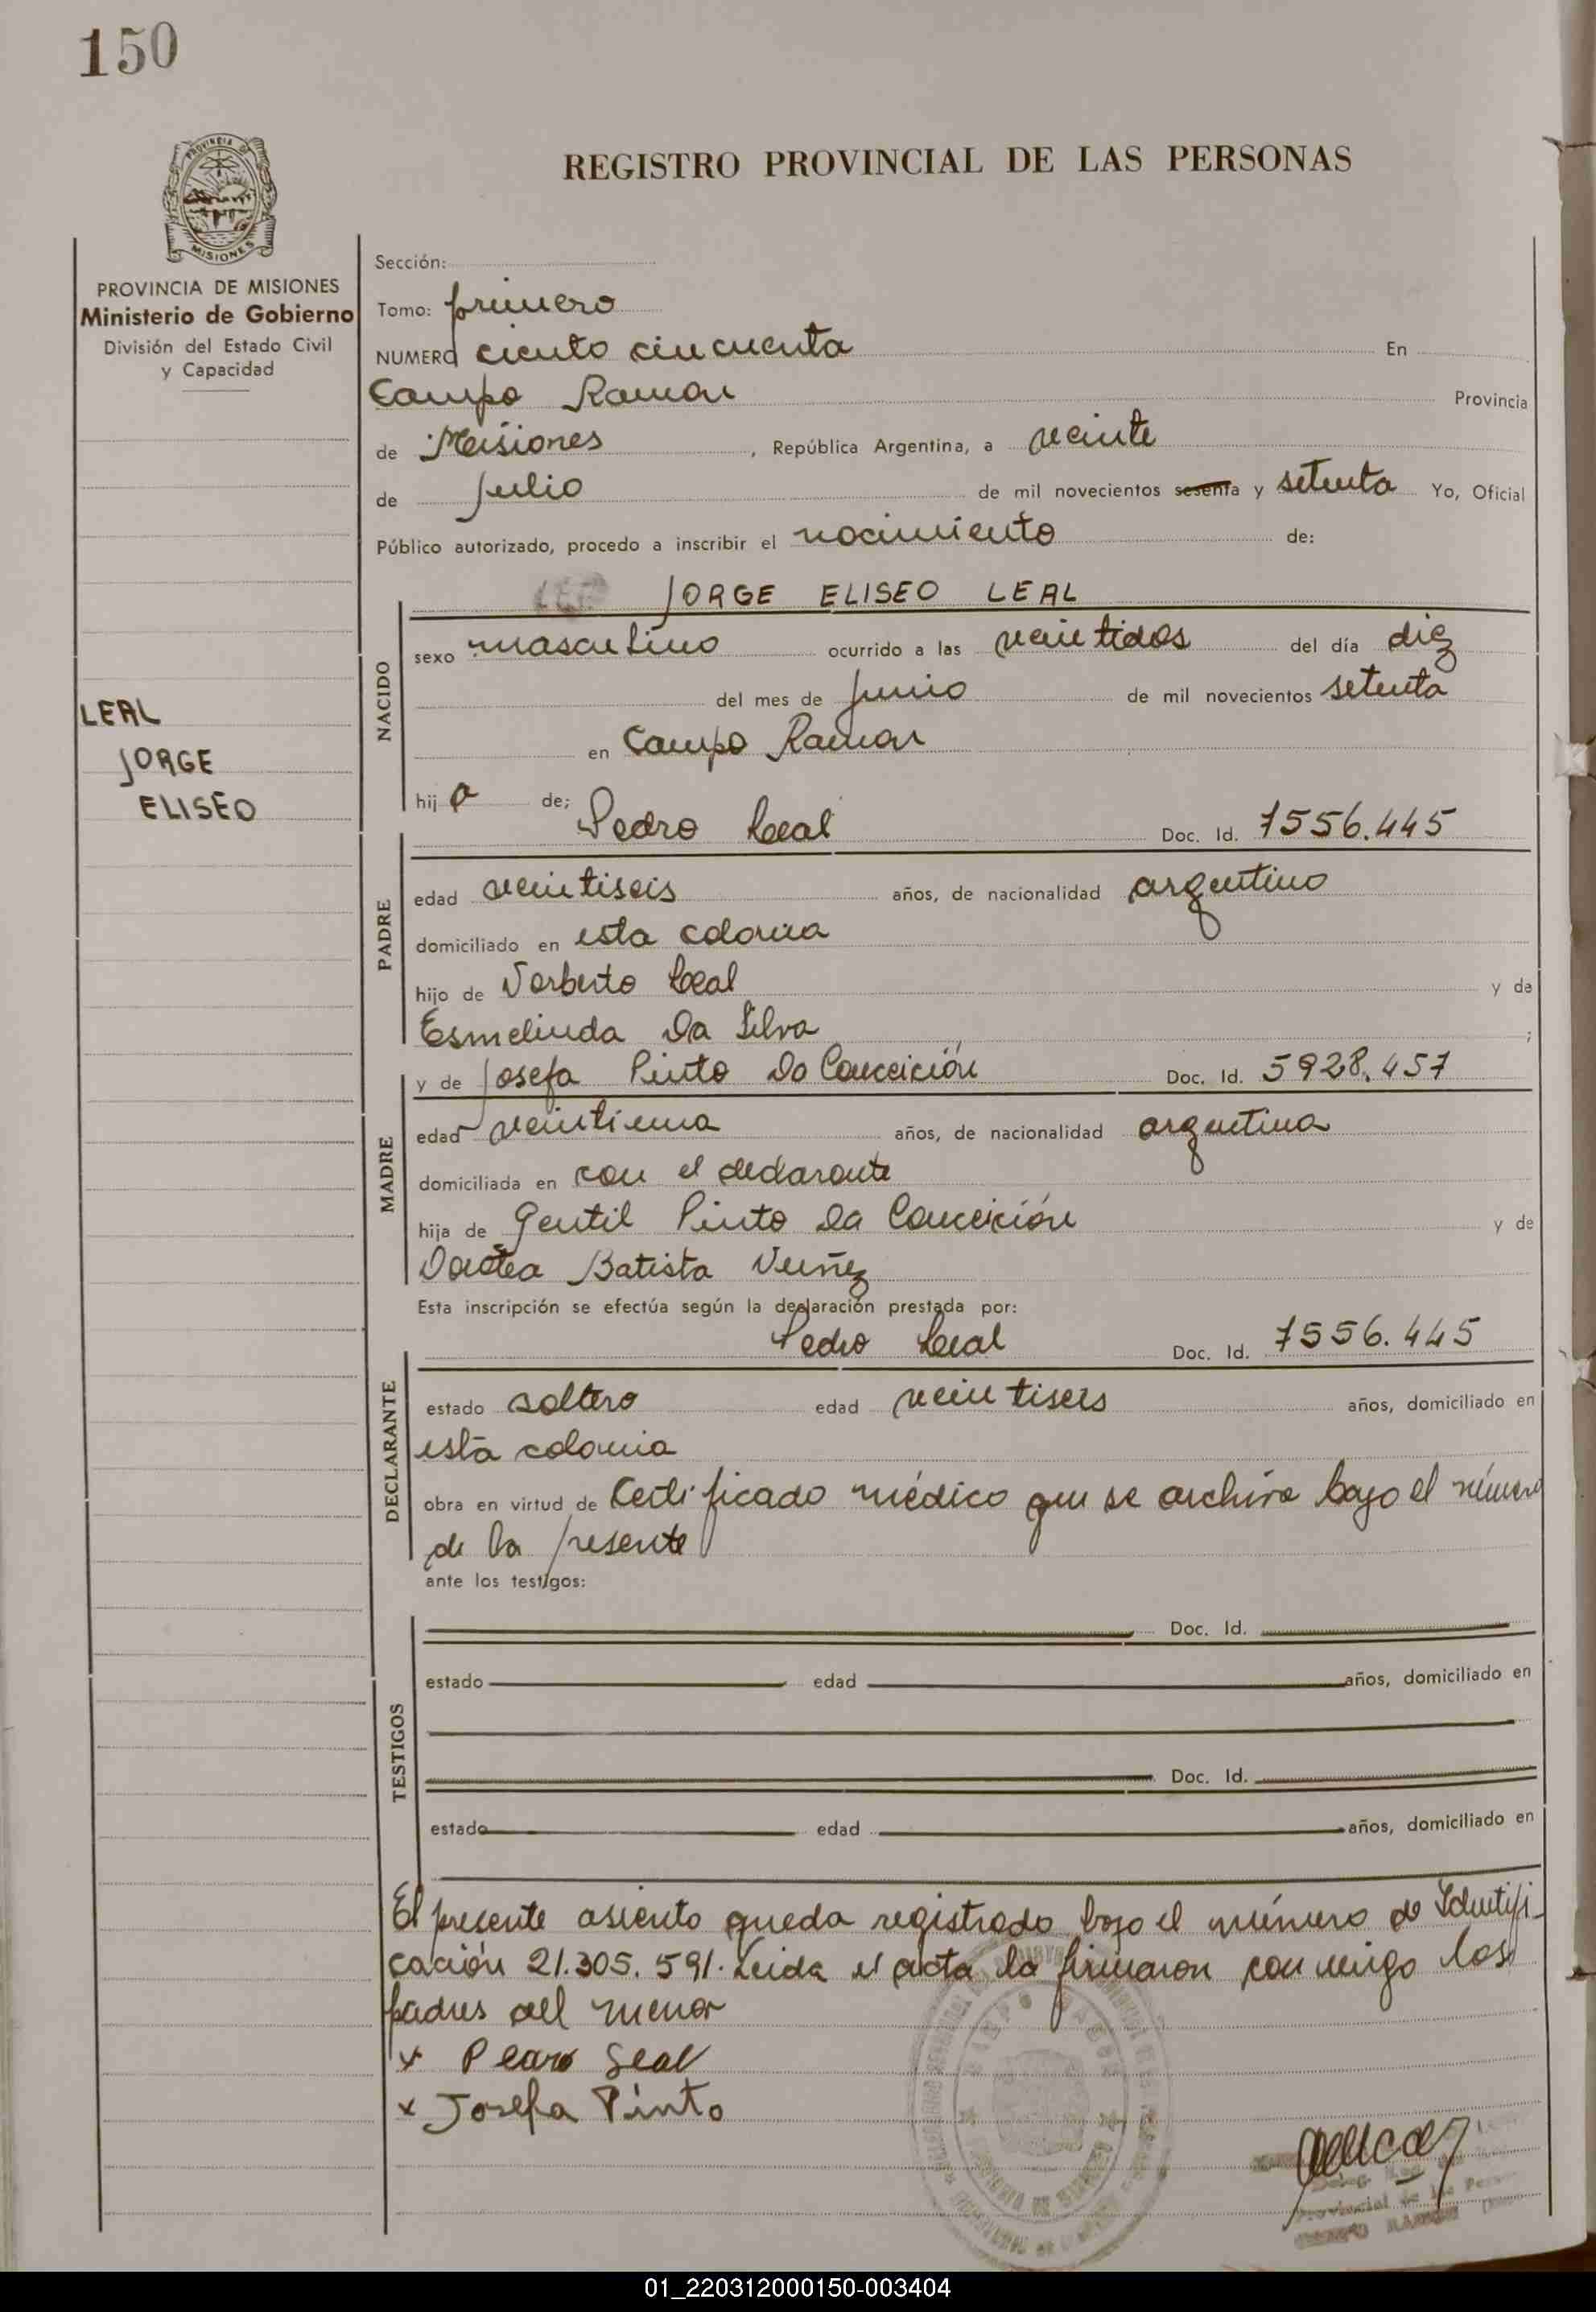 150
PROVINCIA DE
MISIONES
REGISTRO PROVINCIAL DE LAS PERSONAS
PROVINCIA DE MISIONES
Ministerio de Gobierno
División del Estado Civil
y Capacidad
LEAL
JORGE
ELISEO
Sección:
Tomo: primero
NUMERO ciento cincuenta En
Campo Ramon Provincia
de Misiones, República Argentina, a veinte
de Julio de mil novecientos sesenta y setenta Yo, Oficial
Público autorizado, procedo a inscribir el nacimiento de:
JORGE ELISEO LEAL
NACIDO
sexo masculino ocurrido a las veintidos del día diez
del mes de Junio de mil novecientos setenta
en Campo Ramon
hijo de; Pedro Leal Doc. Id. 7556.445
PADRE
edad veintiseis años, de nacionalidad argentino
domiciliado en esta colonia
hijo de Norberto Leal y de
Esmelinda Da Silva ;
y de Josefa Pinto Da Conceición Doc. Id. 5928.457
MADRE
edad veintiuna años, de nacionalidad argentina
domiciliada en con el declarante
hija de Gentil Pinto Da Conceición y de
Batista Nuñez
Esta inscripción se efectúa según la declaración prestada por:
Pedro Leal Doc. Id. 7556.445
DECLARANTE
estado soltero edad veintiseis años, domiciliado en
esta colonia
obra en virtud de Certificado médico que se archiva bajo el número
de la presente
ante los testigos:
Doc. Id.
TESTIGOS
estado edad años, domiciliado en
Doc. Id.
estado edad años, domiciliado en
El presente asiento queda registrado bajo el número de Identifi-
cación 21.305.591. Leida el acta la firmaron conmigo los
padres del menor
x Pedro Leal
x Josefa Pinto
Provincial de las
CAMPO RAMON
01_220312000150-003404